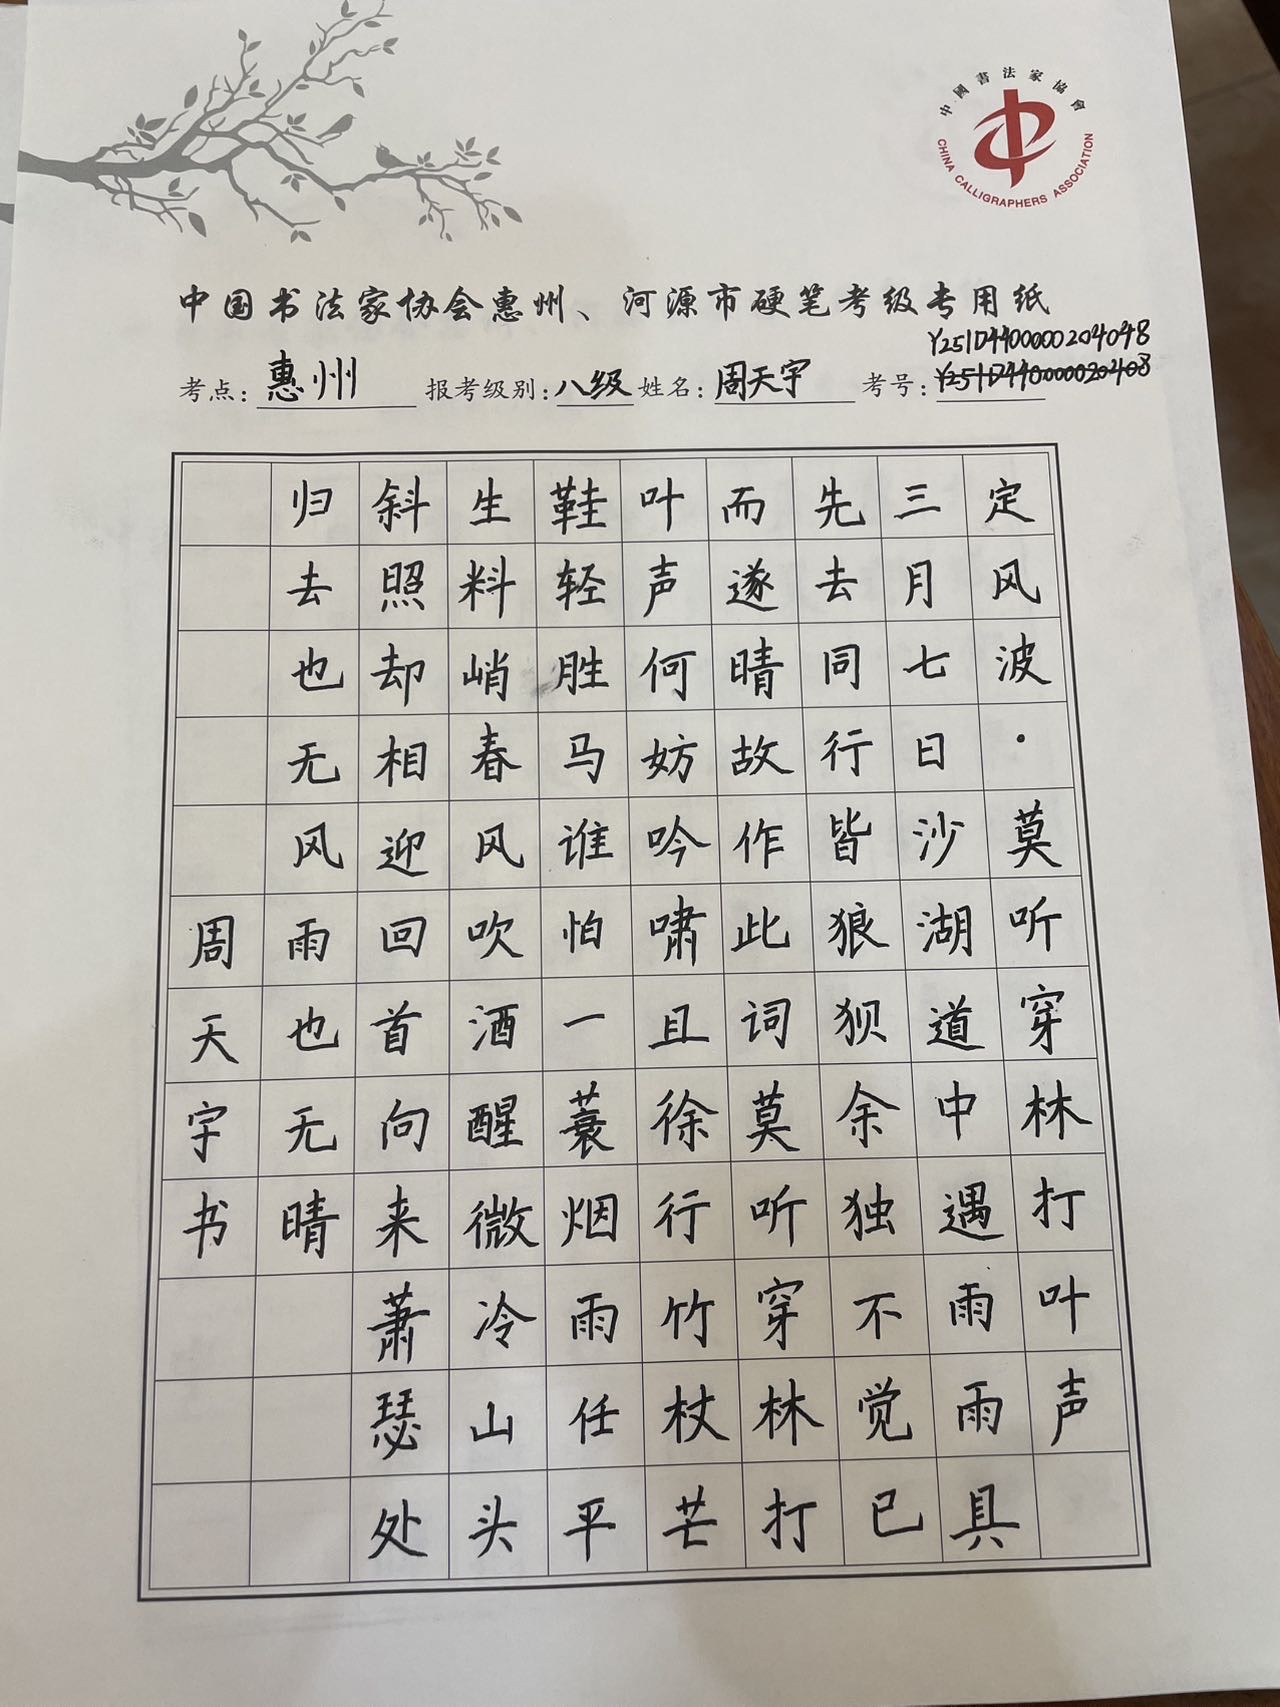 中國書法家協會
CHINA CALLIGRAPHERS ASSOCIATION
中国书法家协会惠州、河源市硬笔考级专用纸
Y251D4400000204048
考点：惠州 报考级别：八级 姓名：周天宇 考号：Y251D440000020408
定风波·莫听穿林打叶声
三月七日沙湖道中遇雨雨具
先去同行皆狼狈余独不觉已
而遂晴故作此词莫听穿林打
叶声何妨吟啸且徐行竹杖芒
鞋轻胜马谁怕一蓑烟雨任平
生料峭春风吹酒醒微冷山头
斜照却相迎回首向来萧瑟处
归去也无风雨也无晴
周天宇书